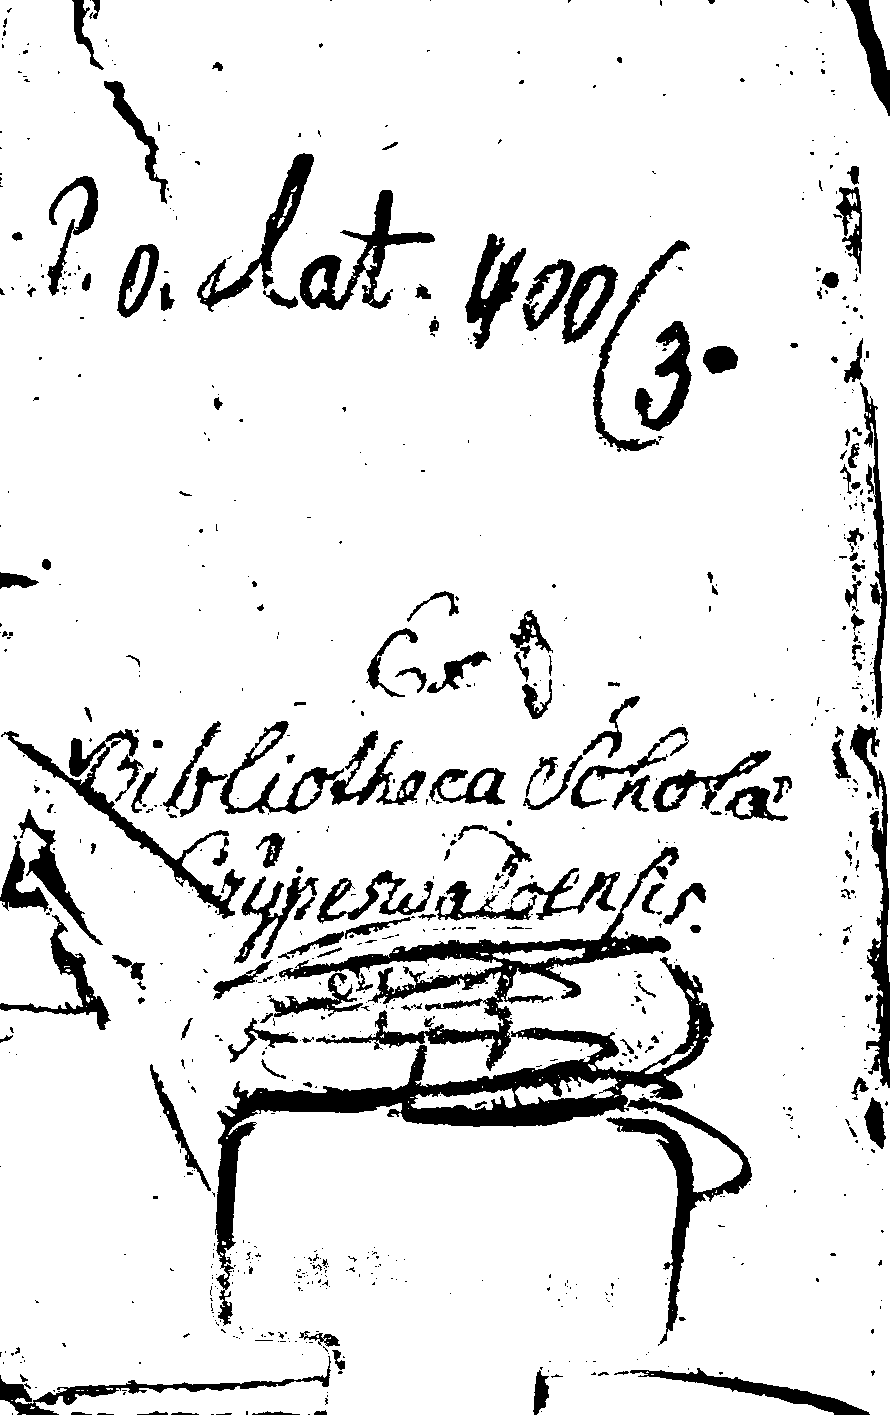 P. o. lat. 400/3.
Ex
Bibliotheca Scholæ
Grypeswaldensis.